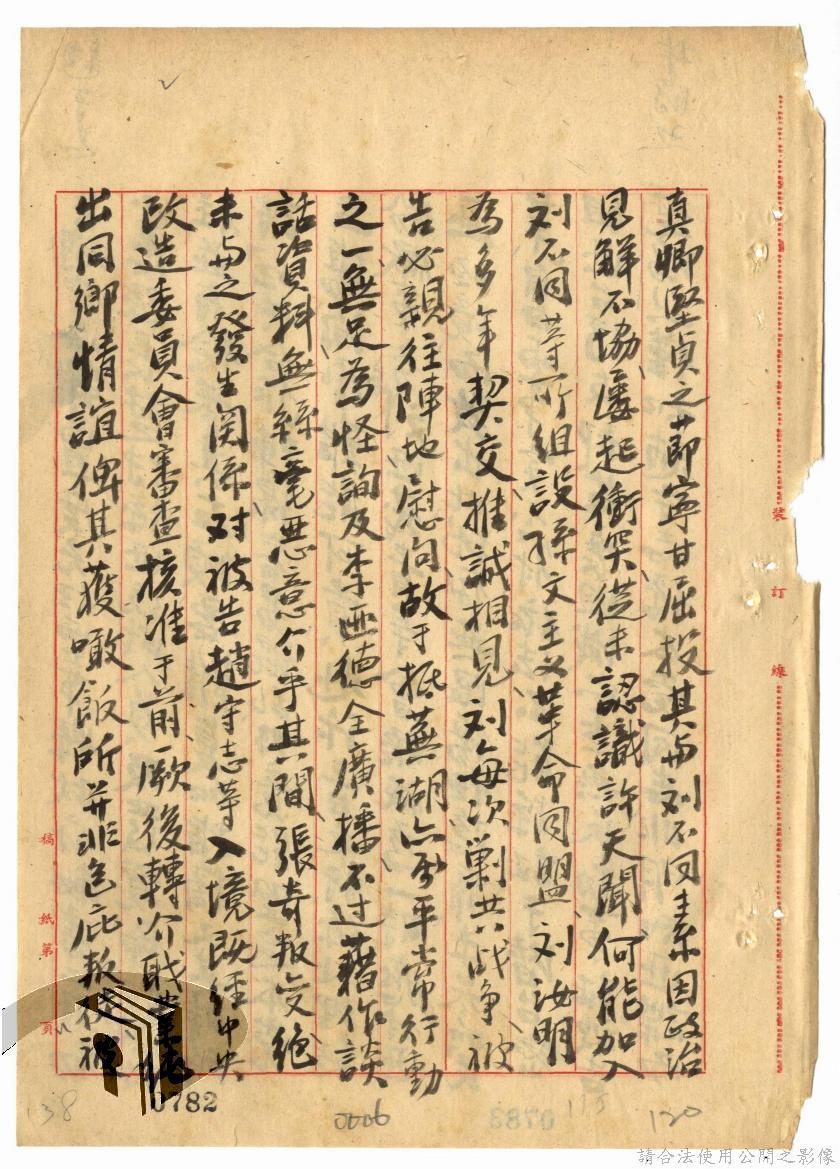 真卿堅貞之節寧甘屈投其与刘不同主系因政治
見解不協屡起衝突從未認識許天聞何能加入
刘不同等所组設孫文主义革命同盟刘汝明
為多年契交推誠相見刘每次剿共战争被
告必親往陣地慰问故于抵蕪湖六 平常行動
之一無足為怪詢及李亜德全廣播不过藉作談
話資料無絲毫恶意介乎其間張奇叛变絶
未与之發生関係对被告趙守志等入境既經中央
改造委員會審查核准于前厥後轉介職業 
出同鄉情誼俾其獲噉飯所並非包庇 被
裝 訂 線
稿 紙 第 頁
0782
0006
138
115
120
0783
請合法使用公開之影像